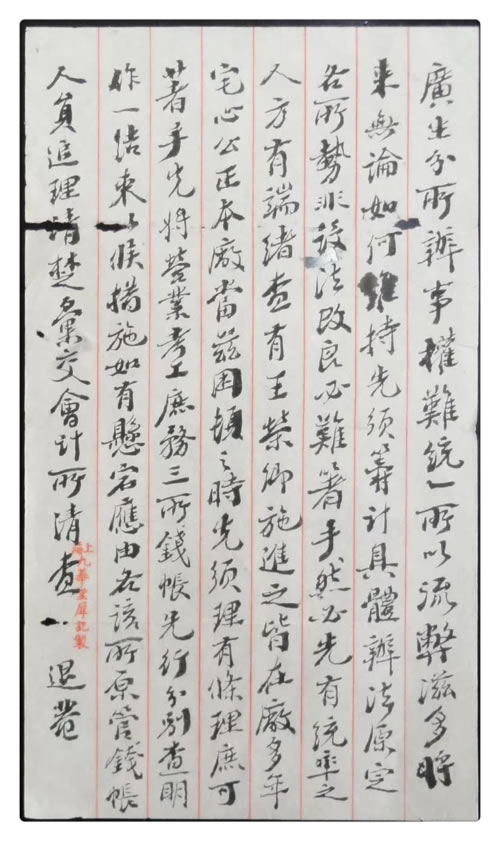 廣生分所辦事權難統一所以流弊滋多將
來無論如何維持先須籌計具體辦法原定
各所勢非設法改良必難箸手然必先有統率之
人方有端緒查有王榮卿施進之皆在廠多年
宅心公正本廠當茲困頓之時先須理有條理庶可
著手先將營業考工庶務三所錢帳先行分別查明
作一結束以候措施如有懸宕應由各該所原管錢帳
人員追理清楚彙交會計所清查 退菴
上海九華堂厚記製